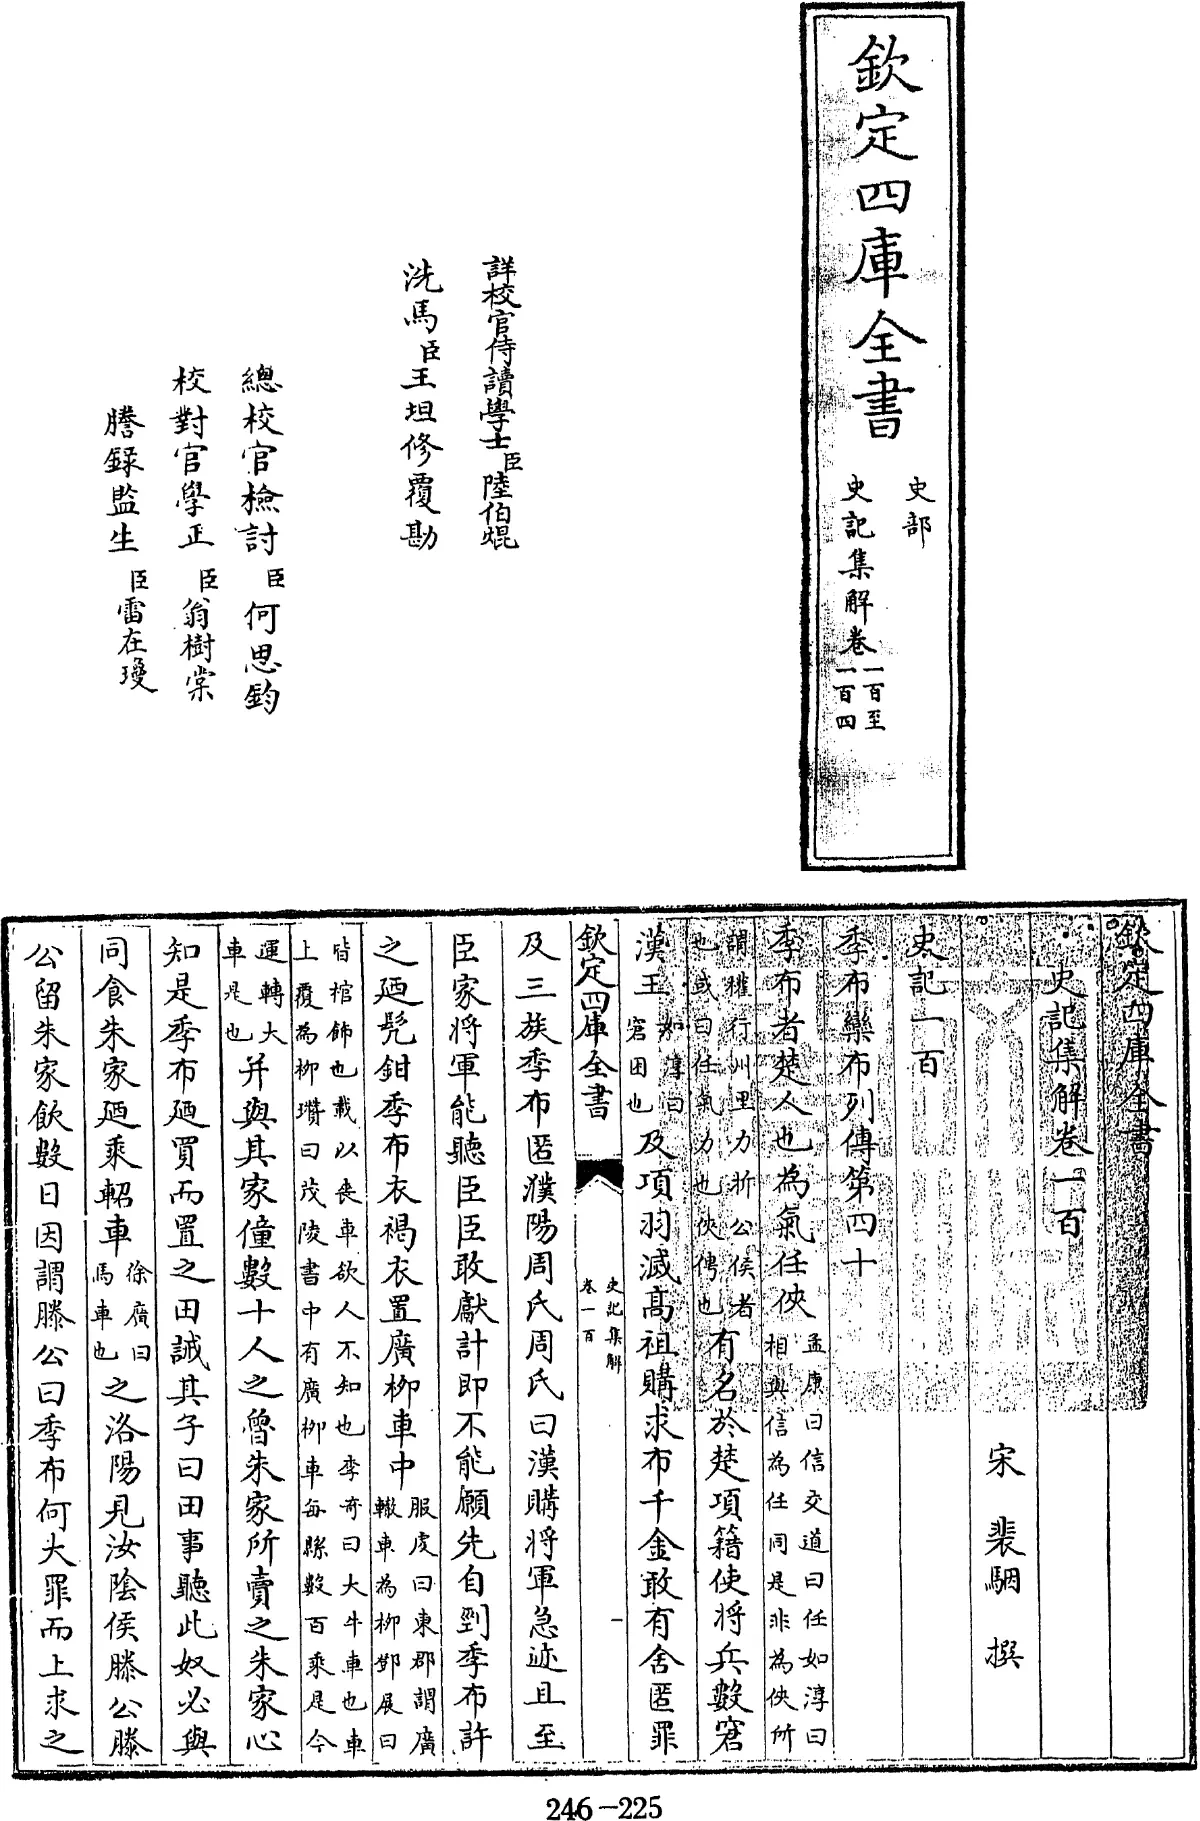 欽定四庫全書
史部
史記集解卷一百至一百四
詳校官侍讀學士臣陸伯焜
洗馬臣王坦修覆勘
總校官檢討臣何思鈞
校對官學正臣翁樹棠
謄錄監生臣雷在瓊
欽定四庫全書
史記集解卷一百
宋 裴駰 撰
史記一百
季布欒布列傳第四十
季布者楚人也為氣任俠孟康曰信交道曰任如淳曰相與信為任同是非為俠所
謂權行州里力折公侯者也或曰任氣力也俠俜也有名於楚項籍使將兵數窘
漢王如淳曰窘困也及項羽滅高祖購求布千金敢有舍匿罪
欽定四庫全書
史記集解
卷一百
一
及三族季布匿濮陽周氏周氏曰漢購將軍急迹且至
臣家將軍能聽臣臣敢獻計即不能願先自剄季布許
之廼髡鉗季布衣褐衣置廣柳車中服虔曰東郡謂廣轍車為柳鄧展曰
皆棺飾也載以喪車欲人不知也李奇曰大牛車也車上覆為柳瓚曰茂陵書中有廣柳車每縣數百乘是今
運轉大車是也并與其家僮數十人之魯朱家所賣之朱家心
知是季布廼買而置之田誡其子曰田事聽此奴必與
同食朱家廼乘軺車徐廣曰馬車也之洛陽見汝陰侯滕公滕
公留朱家飲數日因謂滕公曰季布何大罪而上求之
246-225